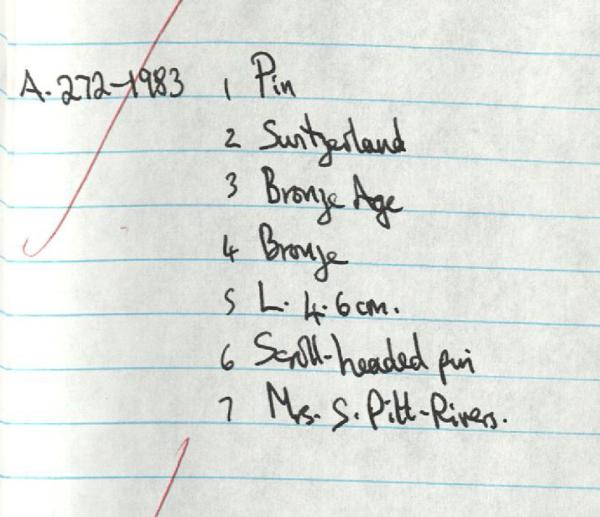 A.272-1983 1 Pin
2 Switzerland
3 Bronze Age
4 Bronze
5 L. 4.6cm.
6 Scroll-headed pin
7 Mrs. S. Pitt-Rivers.